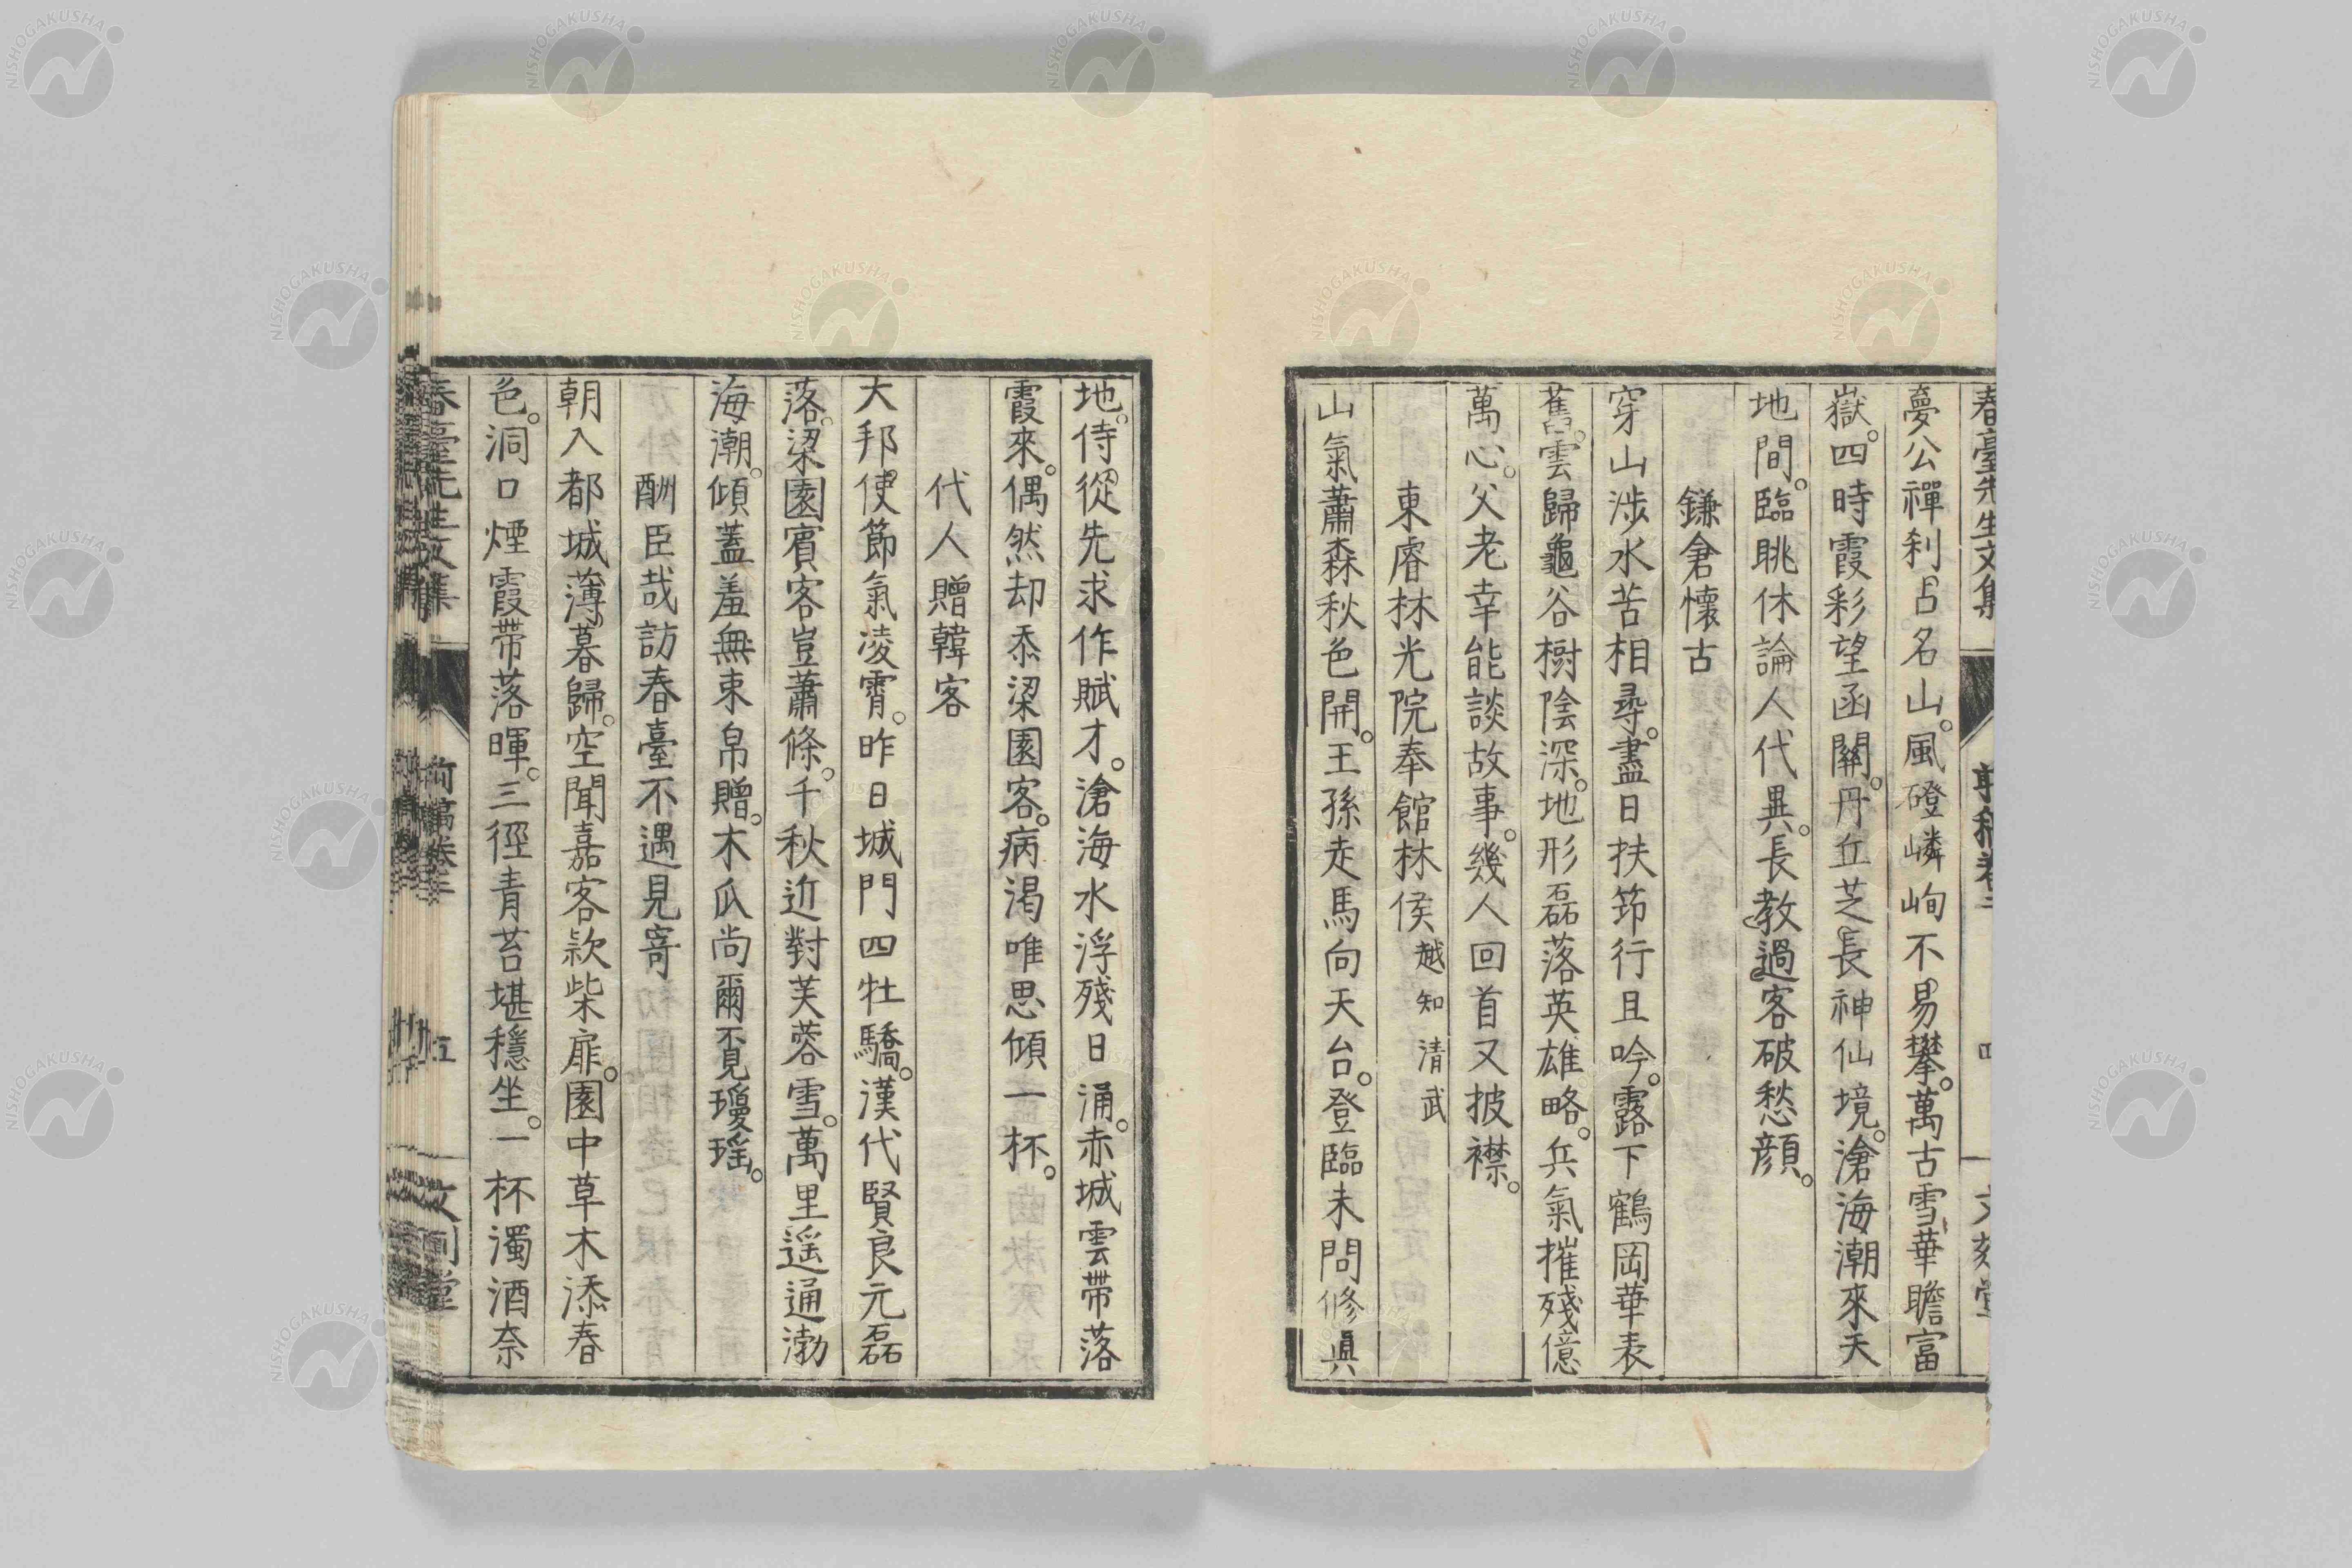 春臺先生文集
四
夢公禪刹占名山。風磴嶙峋不易攀。萬古雪華瞻富
嶽。四時霞彩望函關。丹丘芝長神仙境。滄海潮來天
地間。臨眺休論人代異。長教過客破愁顏。
鎌倉懷古
穿山涉水苦相尋。盡日扶筇行且吟。露下鶴岡華表
舊。雲歸龜谷樹陰深。地形磊落英雄略。兵氣摧殘億
萬心。父老幸能談故事。幾人回首又披襟。
東睿林光院奉館林侯 越知清武
山氣蕭森秋色開。王孫走馬向天台。登臨未問修眞
地。侍從先求作賦才。滄海水浮殘日涌。赤城雲帶落
霞來。偶然却忝梁園客。病渴唯思傾一杯。
代人贈韓客
大邦使節氣凌霄。昨日城門四牡驕。漢代賢良元磊
落。梁園賓客豈蕭條。千秋近對芙蓉雪。萬里遥通渤
海潮。傾蓋羞無束帛贈。木瓜尚爾覓瓊瑤。
酬臣哉訪春臺不遇見寄
朝入都城薄暮歸。空聞嘉客欵柴扉。園中草木添春
色。洞口煙霞帶落暉。三徑青苔堪穩坐。一杯濁酒奈
春臺先生文集
五
NISHOGAKUSHA